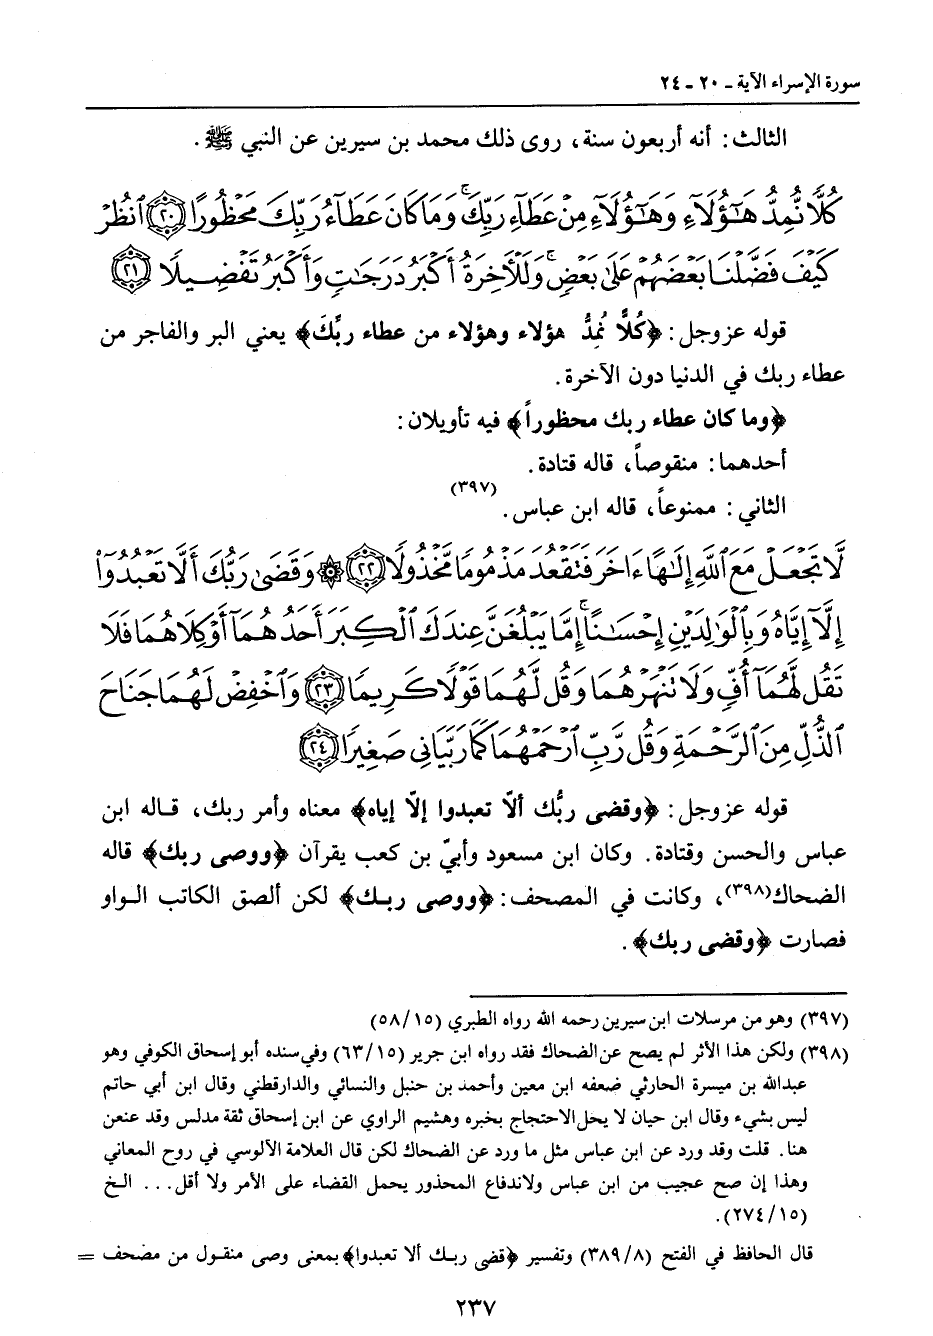 سورة الإسراء الآية ـ ٢٠ ـ ٢٤
الثالث: أنه أربعون سنة، روى ذلك محمد بن سيرين عن النبي ﷺ.
كُلًّا نُّمِدُّ هَٰٓؤُلَآءِ وَهَٰٓؤُلَآءِ مِنْ عَطَآءِ رَبِّكَ ۚ وَمَا كَانَ عَطَآءُ رَبِّكَ مَحْظُورًا ﴿٢٠﴾ ٱنظُرْ
كَيْفَ فَضَّلْنَا بَعْضَهُمْ عَلَىٰ بَعْضٍ ۚ وَلَلْأَخِرَةُ أَكْبَرُ دَرَجَٰتٍ وَأَكْبَرُ تَفْضِيلًا ﴿٢١﴾
قوله عزوجل: ﴿كُلاًّ نُمِدُّ هؤلاء وهؤلاء من عطاء ربِّكَ﴾ يعني البر والفاجر من
عطاء ربك في الدنيا دون الآخرة.
﴿وما كان عطاء ربك محظوراً﴾ فيه تأويلان:
أحدهما: منقوصاً، قاله قتادة.
الثاني: ممنوعاً، قاله ابن عباس.(٣٩٧)
لَّا تَجْعَلْ مَعَ ٱللَّهِ إِلَٰهًا ءَاخَرَ فَتَقْعُدَ مَذْمُومًا مَّخْذُولًا ﴿٢٢﴾ ۞ وَقَضَىٰ رَبُّكَ أَلَّا تَعْبُدُوٓا۟
إِلَّآ إِيَّاهُ وَبِٱلْوَٰلِدَيْنِ إِحْسَٰنًا ۚ إِمَّا يَبْلُغَنَّ عِندَكَ ٱلْكِبَرَ أَحَدُهُمَآ أَوْ كِلَاهُمَا فَلَا
تَقُل لَّهُمَآ أُفٍّ وَلَا تَنْهَرْهُمَا وَقُل لَّهُمَا قَوْلًا كَرِيمًا ﴿٢٣﴾ وَٱخْفِضْ لَهُمَا جَنَاحَ
ٱلذُّلِّ مِنَ ٱلرَّحْمَةِ وَقُل رَّبِّ ٱرْحَمْهُمَا كَمَا رَبَّيَانِى صَغِيرًا ﴿٢٤﴾
قوله عزوجل: ﴿وقضى ربُّك ألاّ تعبدوا إلاّ إياه﴾ معناه وأمر ربك، قاله ابن
عباس والحسن وقتادة. وكان ابن مسعود وأبيّ بن كعب يقرآن ﴿ووصى ربك﴾ قاله
الضحاك(٣٩٨)، وكانت في المصحف: ﴿ووصى ربك﴾ لكن ألصق الكاتب الواو
فصارت ﴿وقضى ربك﴾.
(٣٩٧) وهو من مرسلات ابن سيرين رحمه الله رواه الطبري (٥٨/١٥)
(٣٩٨) ولكن هذا الأثر لم يصح عن الضحاك فقد رواه ابن جرير (٦٣/١٥) وفي سنده أبو إسحاق الكوفي وهو
عبدالله بن ميسرة الحارثي ضعفه ابن معين وأحمد بن حنبل والنسائي والدارقطني وقال ابن أبي حاتم
ليس بشيء وقال ابن حيان لا يحل الاحتجاج بخبره وهشيم الراوي عن ابن إسحاق ثقة مدلس وقد عنعن
هنا. قلت وقد ورد عن ابن عباس مثل ما ورد عن الضحاك لكن قال العلامة الألوسي في روح المعاني
وهذا إن صح عجيب من ابن عباس ولاندفاع المحذور يحمل القضاء على الأمر ولا أقل... الخ
(٢٧٤/١٥).
قال الحافظ في الفتح (٣٨٩/٨) وتفسير ﴿قضى ربك ألا تعبدوا﴾ بمعنى وصى منقول من مصحف =
٢٣٧